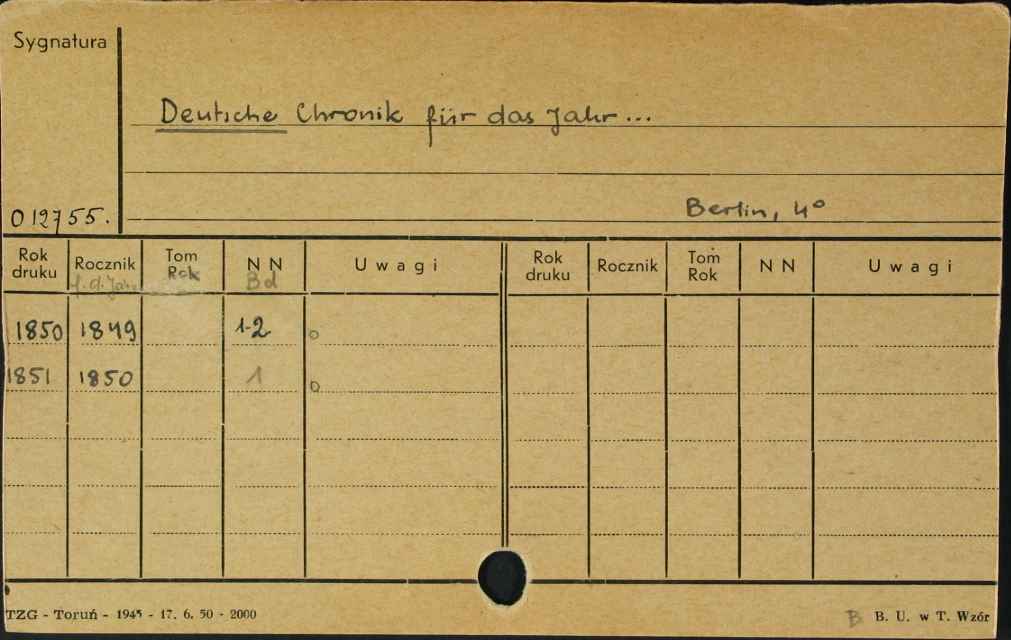 Sygnatura
Deutsche Chronik für das Jahr ...
Berlin, 4°
012755.
Rok druku Rocznik Tom Rok N N Uwagi Rok druku Rocznik Tom Rok N N Uwagi
f.d.Jahr Bd
1850 1849 1-2 o
1851 1850 1 o
TZG - Toruń - 1945 - 17. 6. 50 - 2000 B B. U. w T. Wzór